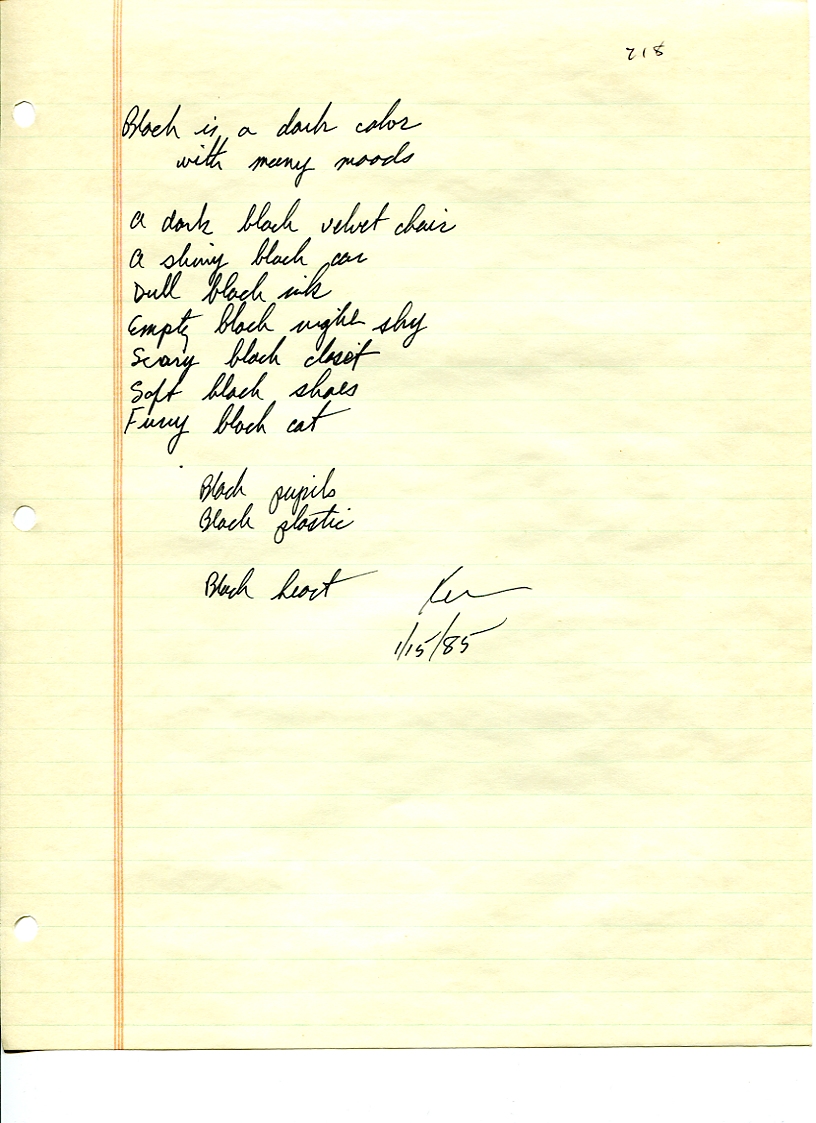 718
Black is a dark color
with many moods
A dark black velvet chair
A shiny black car
Dull black ink
Empty black night sky
Scary black closet
Soft black shoes
Furry black cat
Black pupils
Black plastic
Black heart
1/15/85